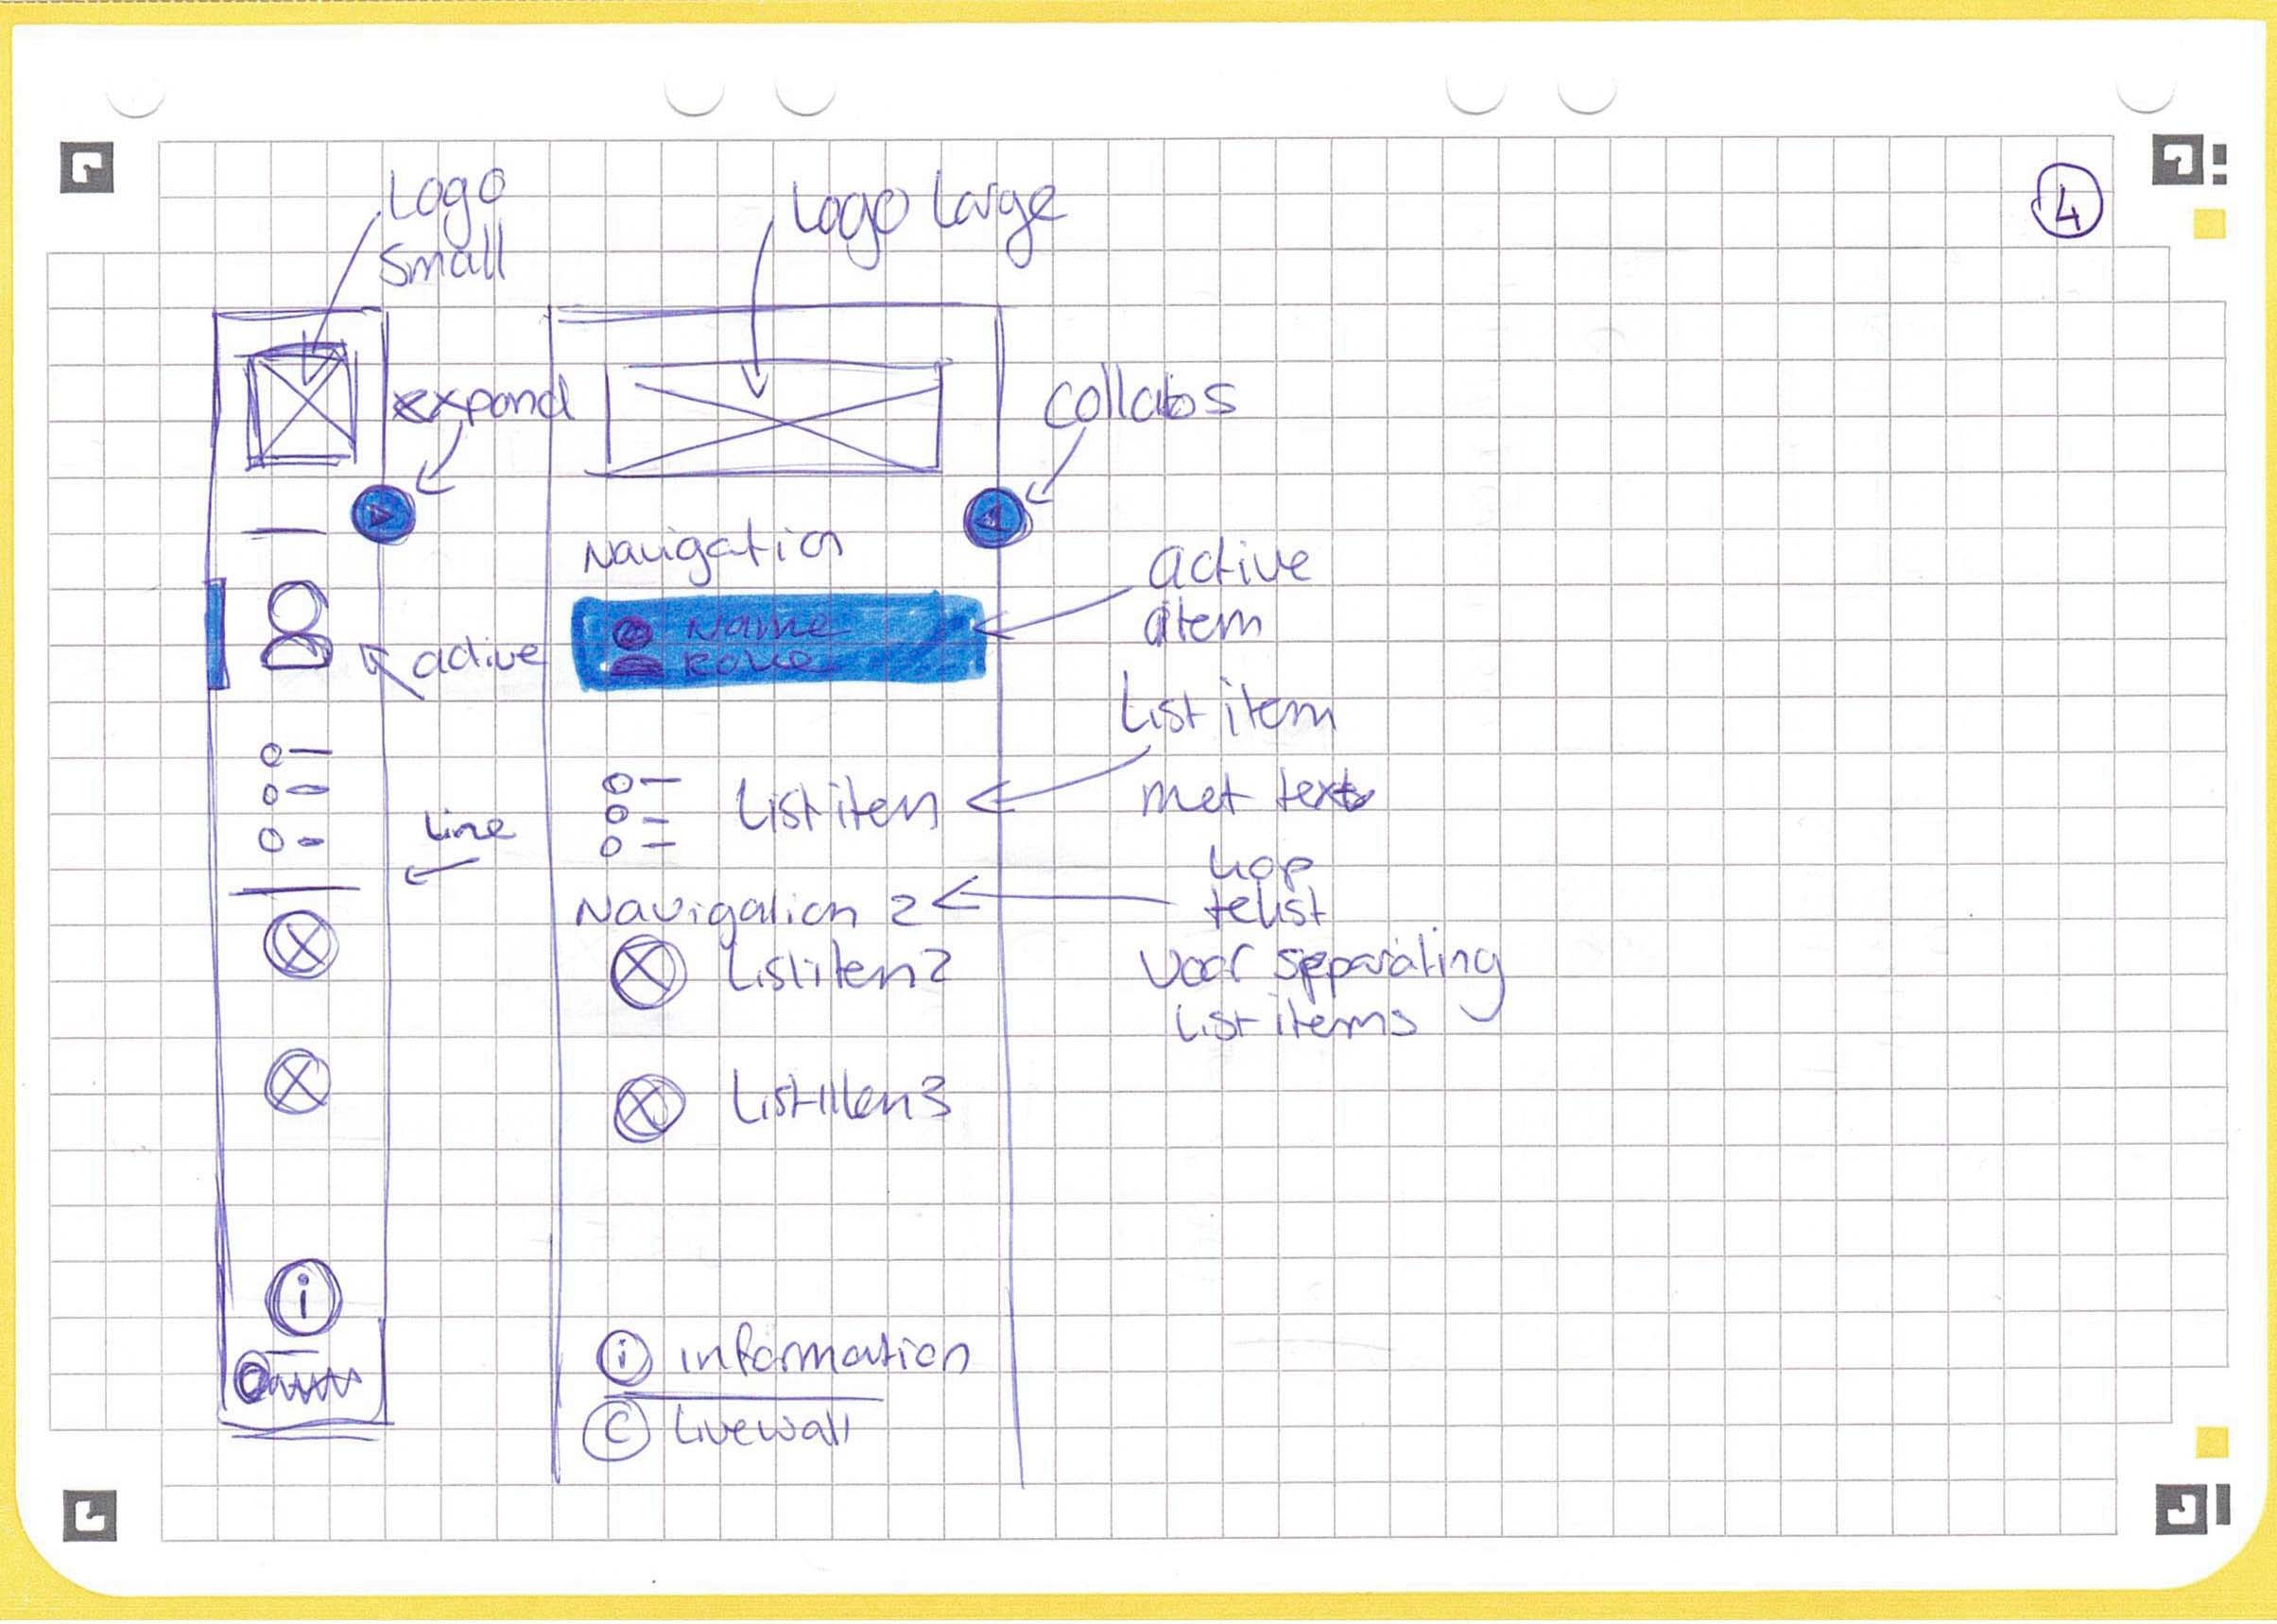 4
Logo
Small
Logo Large
expand
collabs
Navigation
active
item
Name
active
List item
met text
Listitem
Line
Navigation 2
voor separating
list items
Listitem2
Listitem3
i
i information
© Livewall